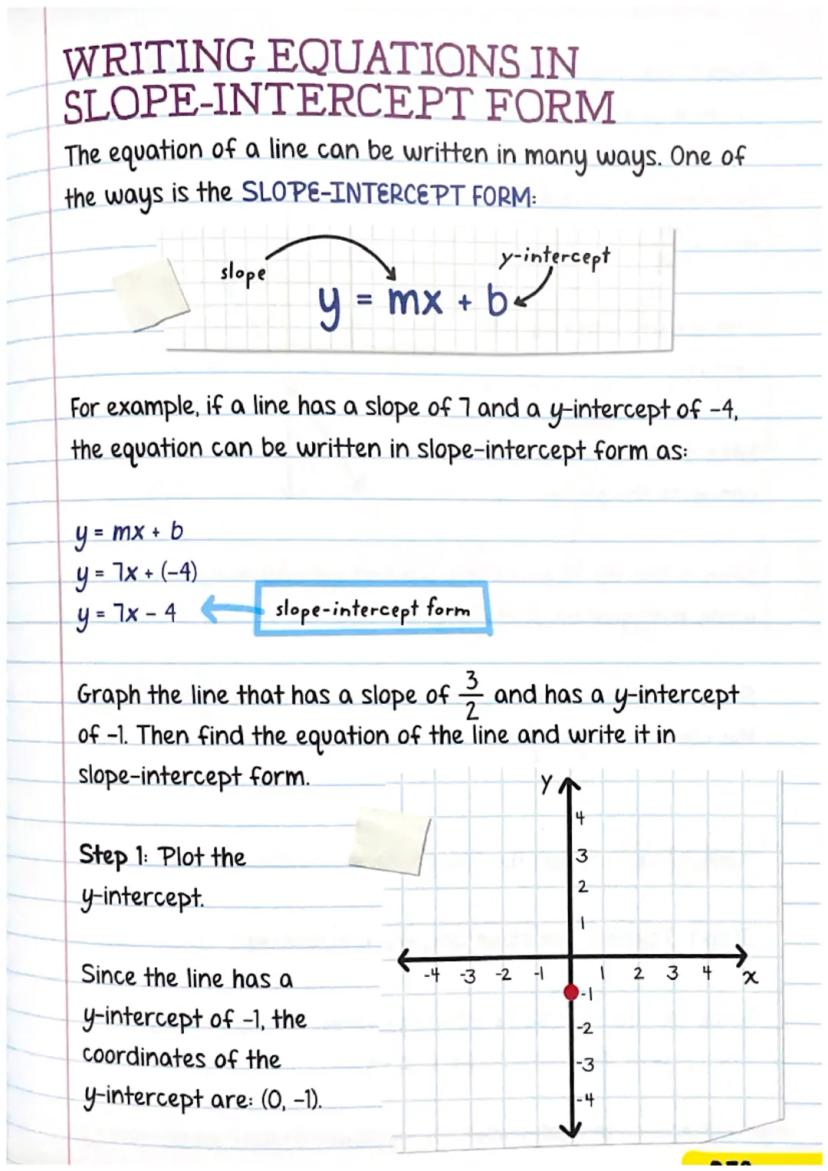 WRITING EQUATIONS IN
SLOPE-INTERCEPT FORM
The equation of a line can be written in many ways. One of
the ways is the SLOPE-INTERCEPT FORM:
slope
y-intercept
y = mx + b
For example, if a line has a slope of 7 and a y-intercept of -4,
the equation can be written in slope-intercept form as:
y = mx + b
y = 7x + (-4)
y = 7x - 4
slope-intercept form
Graph the line that has a slope of 3/2 and has a y-intercept
of -1. Then find the equation of the line and write it in
slope-intercept form.
Step 1: Plot the
y-intercept.
Since the line has a
y-intercept of -1, the
coordinates of the
y-intercept are: (0, -1).
Y
4
3
2
1
-4 -3 -2 -1 1 2 3 4 x
-1
-2
-3
-4